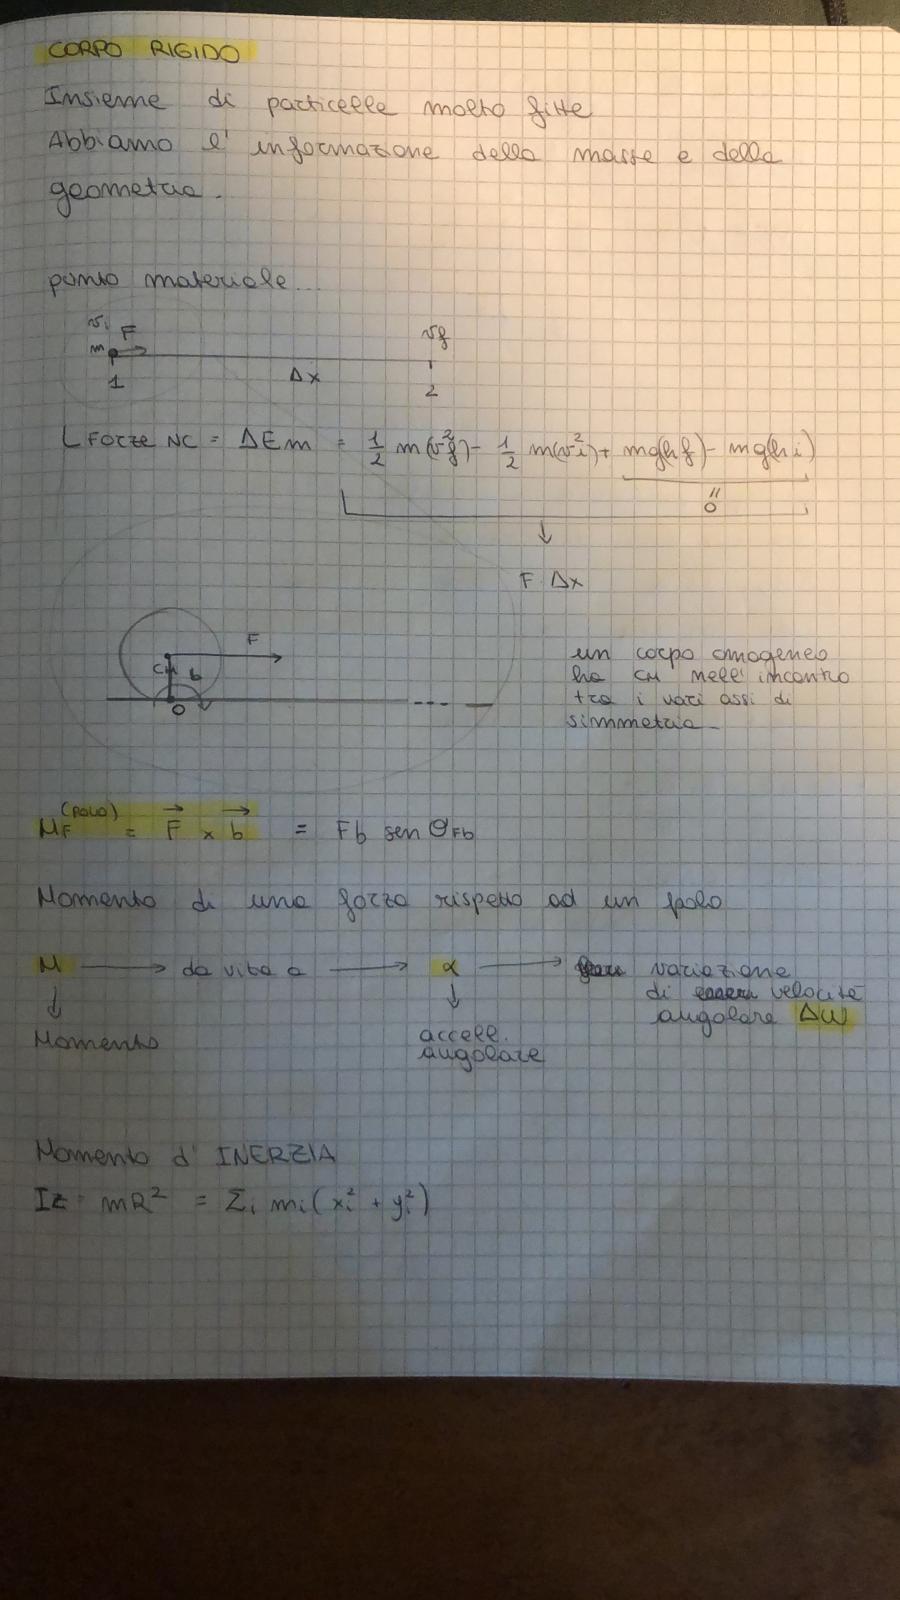 CORPO RIGIDO
Insieme di particelle molto fitte
Abbiamo l' informazione della masse e della
geometria.
punto materiale...
vi F vf
m
1 Δx 2
L Forze NC = ΔEm = 1/2 m(v²f) - 1/2 m(v²i) + mg(hf) - mg(hi)
"
0
↓
F Δx
F
CM b
O
un corpo omogeneo
ha CM nell' incontro
tra i vari assi di
simmetria
MF (POLO) = F⃗ × b⃗ = Fb sen θFb
Momento di una forza rispetto ad un polo
M → da vita a → α → variazione
di velocità
angolare Δω
↓ ↓
Momento accell.
angolare
Momento d' INERZIA
Iz = mR² = Σi mi(xi² + yi²)